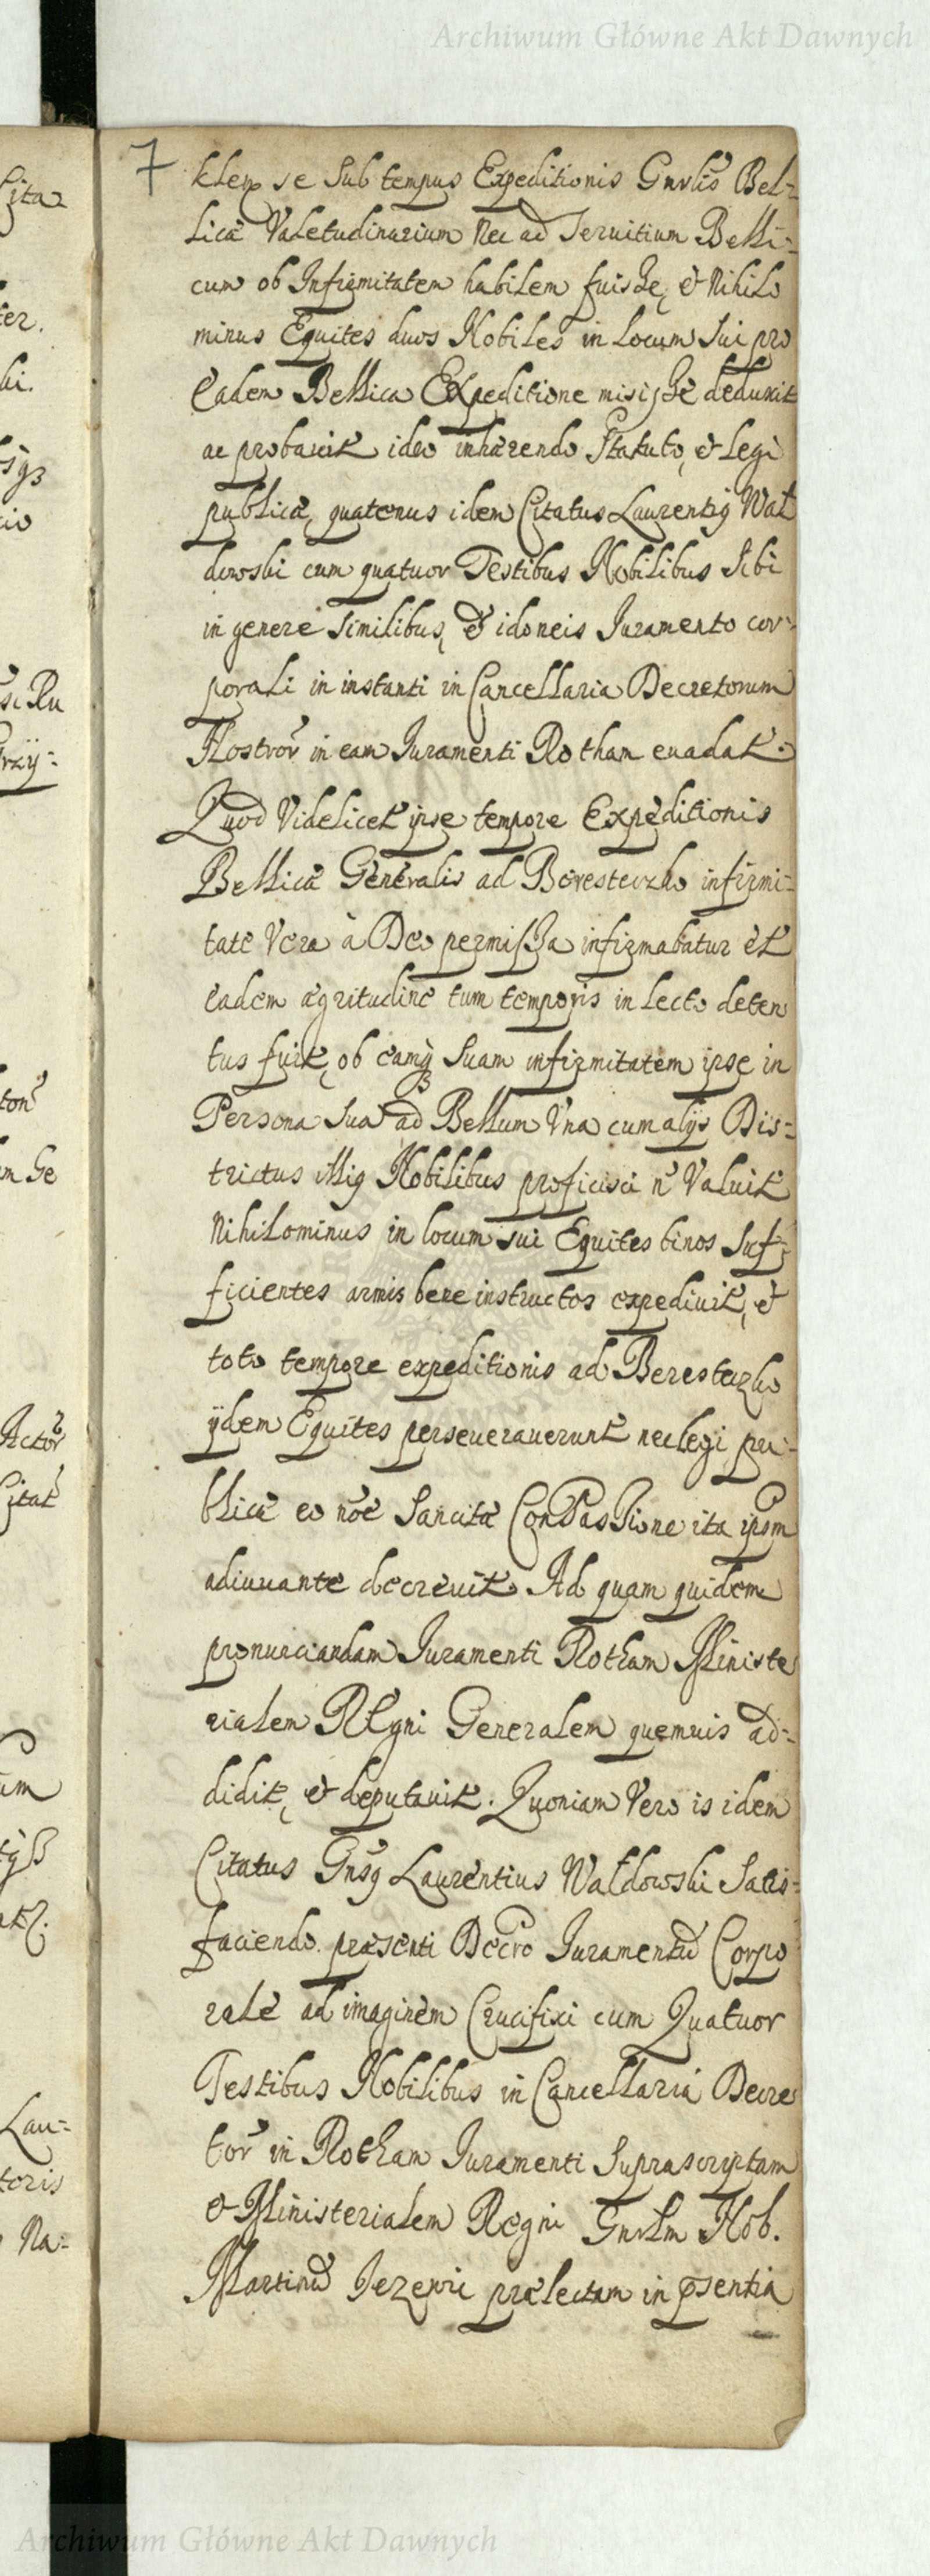 Archiwum Główne Akt Dawnych
7
se Sub tempus Expeditionis Gnrlis Bel=
licæ Valetudinarium Nec ad Servitium Belli=
cum ob Infirmitatem habilem fuisse, & Nihilo
minus Equites duos Nobiles in Locum Sui pro
Eadem Bellica Expeditione misisse deduxit
ac probavit ideo inhærendo Statuto, & Legi
publicæ, quatenus idem Citatus Laurentiꝰ Wal
dowski cum quatuor Testibus Nobilibus Sibi
in genere Similibus, & idoneis Iuramento cor=
porali in instanti in Cancellaria Decretorum
Nostror̃ in eam Iuramenti Rotham evadat.
Quod Videlicet ipse tempore Expeditionis
Bellicæ Generalis ad Beresteczko infirmi=
tate Vera à Deo permissa infirmabatur et
eadem ægritudine tum temporis in Lecto deten
tus fuit, ob eamqꝫ Suam infirmitatem ipse in
Persona Sua ad Bellum Vna cum alijs Dis=
trictus illiꝰ Nobilibus proficisci ñ Valuit
Nihilominus in locum sui Equites binos Suf=
ficientes armis bene instructos expedivit, &
toto tempore expeditionis ad Beresteczko
ijdem Equites perseveraverunt nec legi pu=
blicæ eo nõe Sancitæ ita ipsm
adiuvante decrevit. Ad quam quidem
pronunciandam Iuramenti Rotham Ministe
rialem Regni Generalem quemvis ad=
didit, & deputavit. Quoniam Vero is idem
Citatus Gnsꝰ Laurentius Waldowski Satis=
faciendo præsenti Decro Iuramentũ Corpo
rale ad imaginem Crucifixi cum Quatuor
Testibus Nobilibus in Cancellaria Decre
tor̃ in Rotham Iuramenti Suprascriptam
& Ministerialem Regni Gnrlm Nob.
Martinũ prælectam in pñsentia
Archiwum Główne Akt Dawnych